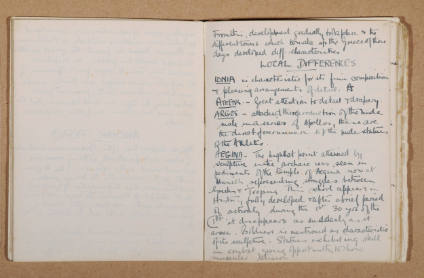 From this, development gradually to Replace & the
different towns which to make up the Greece of those
days developed diff. characteristics.
LOCAL DIFFERENCES
IONIA is characteristic for its fine composition
& pleasing arrangements of detail. A
ATHENS - Great attention to detail & drapery
ARGOS - studied the reproduction of the nude
male and series of Apollos, these are
the direct forerunners of the nude statues
of the Athletes.
AEGINA - The highest point attained by
sculpture in the archaic is seen in
pediments of the temple of Aegina now at
Munich representing struggles between
Greeks & Trojans. This school appears in
fully developed after a brief period
of activity during the 1st 30 yrs of the
it disappears as suddenly as it
arose. Boldness is mentioned as characteristic
of its sculpture - Statues exhibiting skill
in giving opportunity to show
muscular